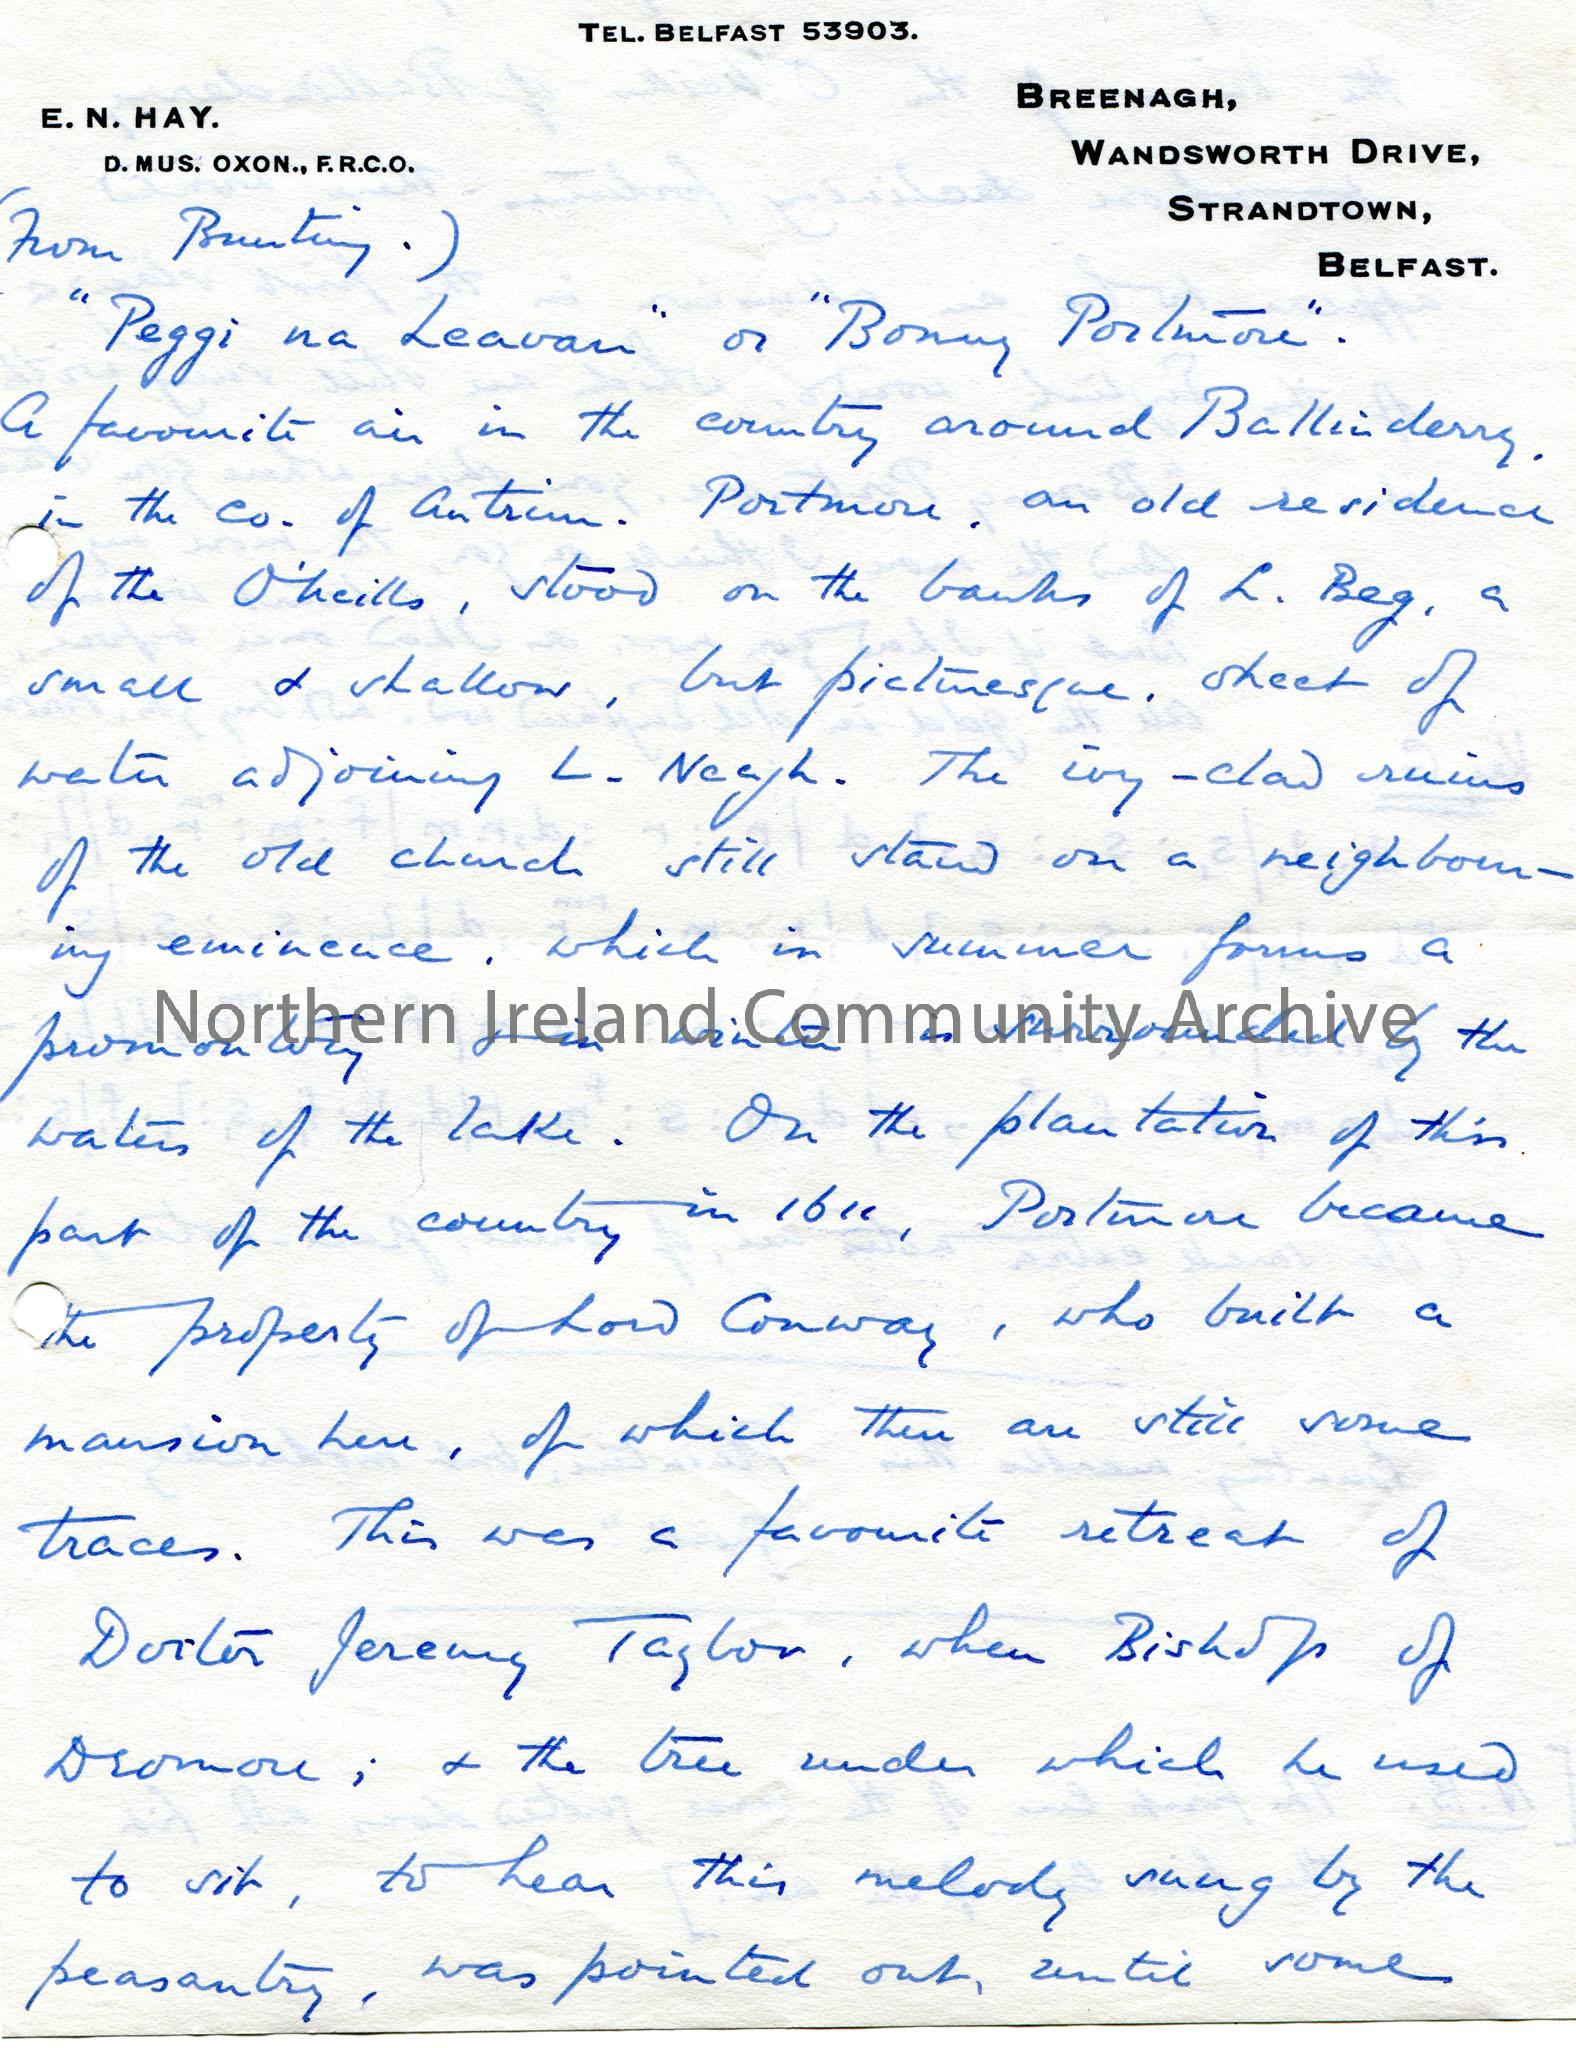 TEL. BELFAST 53903.
E. N. HAY.
D. MUS. OXON., F.R.C.O.
BREENAGH,
WANDSWORTH DRIVE,
STRANDTOWN,
BELFAST.
(From Bunting.)
"Peggi na Leavan" or "Bonny Portmore".
A favourite air in the country around Ballinderry,
in the co. of Antrim. Portmore, an old residence
of the O'Neills, stood on the banks of L. Beg, a
small & shallow, but picturesque, sheet of
water adjoining L. Neagh. The ivy-clad ruins
of the old church still stand on a neighbour-
ing eminence, which in summer forms a
promontory & in winter is surrounded by the
Northern Ireland Community Archive
waters of the lake. On the plantation of this
part of the country in 1611, Portmore became
the property of Lord Conway, who built a
mansion here, of which there are still some
traces. This was a favourite retreat of
Doctor Jeremy Taylor, when Bishop of
Dromore; & the tree under which he used
to sit, to hear this melody sung by the
peasantry, was pointed out, until some